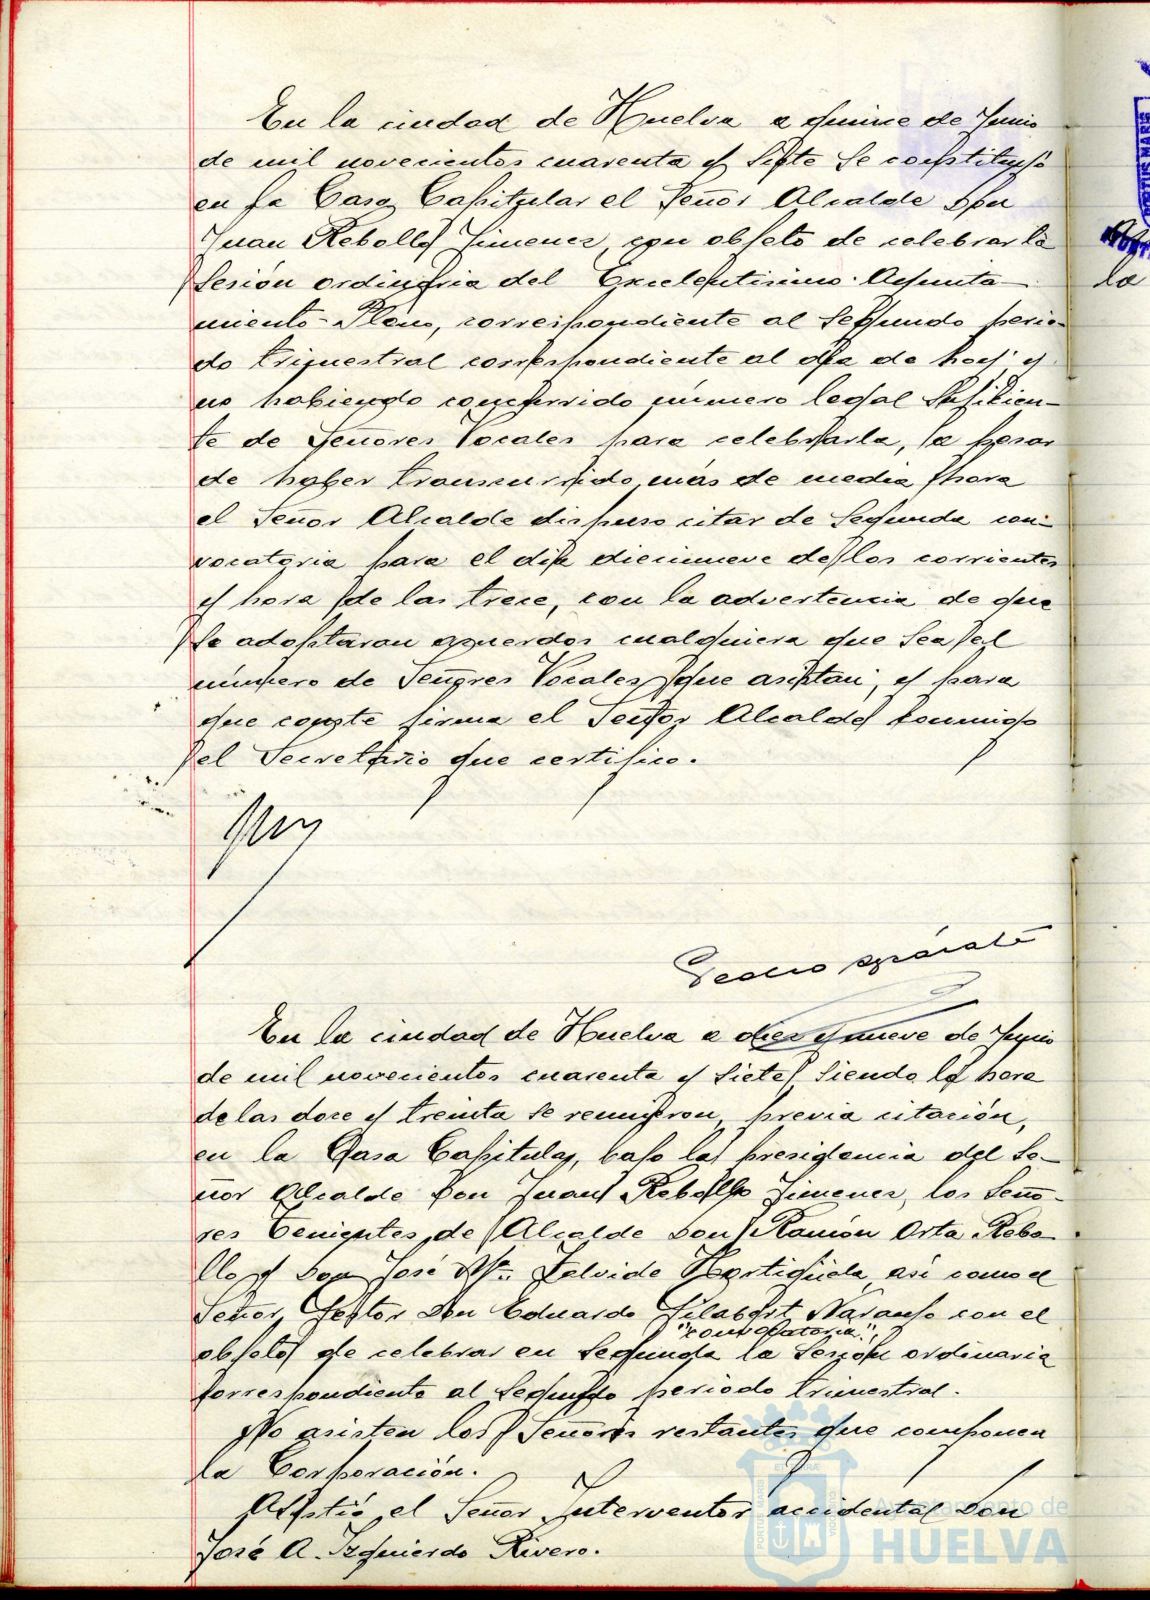 En la ciudad de Huelva a quince de Junio
de mil novecientos cuarenta y siete se constituyó
en la Casa Capitular el Señor Alcalde Don
Juan Rebollo Jimenez, con objeto de celebrar la
Sesión ordinaria del Excelentisimo Ayunta-
miento-Pleno, correspondiente al Segundo perio-
do trimestral correspondiente al día de hoy; y
no habiendo concurrido número legal suficien-
te de Señores Vocales para celebrarla, a pesar
de haber transcurrido más de media hora
el Señor Alcalde dispuso citar de Segunda con-
vocatoria para el día diecinueve de los corrientes
y hora de las trece, con la advertencia de que
se adoptaran acuerdos cualquiera que sea el
número de Señores Vocales que asistan; y para
que conste firma el Señor Alcalde conmigo
el Secretario que certifico.
En la ciudad de Huelva a diez y nueve de Junio
de mil novecientos cuarenta y siete, siendo la hora
de las doce y treinta se reunieron, previa citación,
en la Casa Capitular, bajo la presidencia del Se-
ñor Alcalde Don Juan Rebollo Jimenez, los Seño-
res Tenientes de Alcalde Don Ramón Orta Rebo-
llo y Don José Mª. Zelvide Hortigüela, así como el
Señor Gestor Don Eduardo Filabert Naranjo con el
"convocatoria",
objeto de celebrar en Segunda la Sesión ordinaria
correspondiente al Segundo periodo trimestral.
No asisten los Señores restantes que componen
la Corporación.
Asistió el Señor Interventor accidental Don
José A. Izquierdo Rivero.
la
PORTUS MARIS
Ayuntamiento de
HUELVA